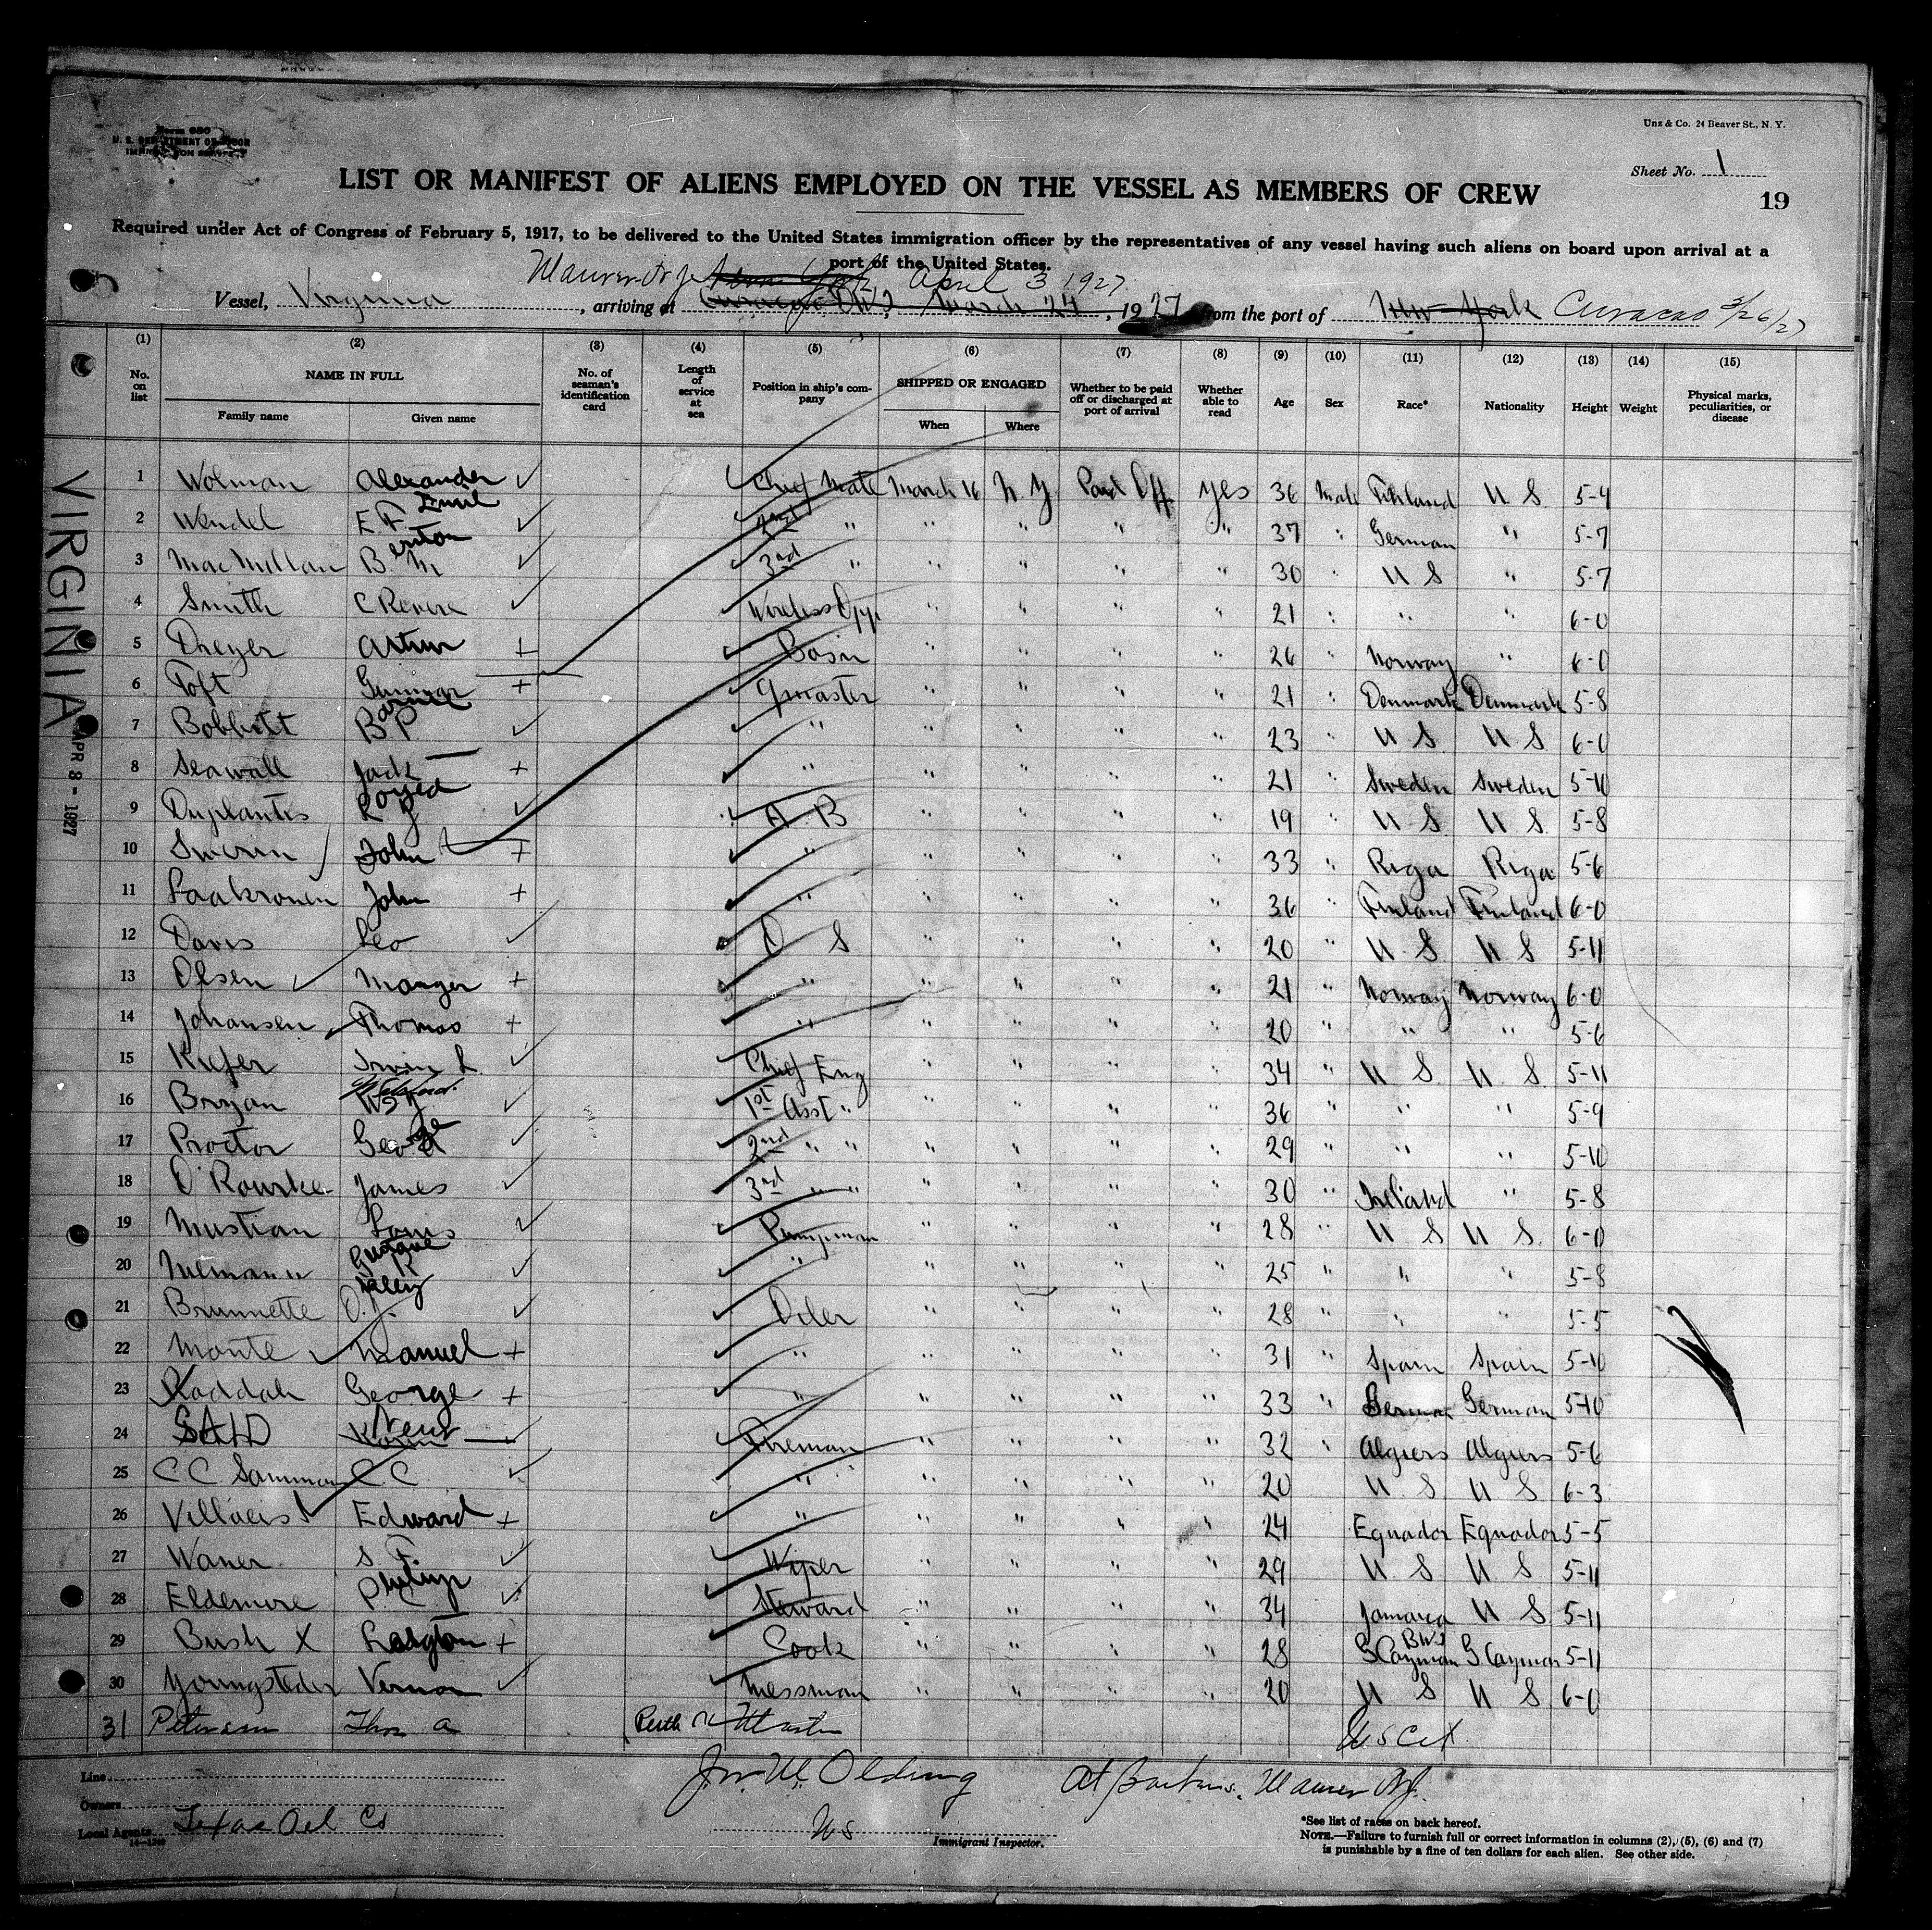 Form 680
U. S. DEPARTMENT OF LABOR
IMMIGRATION SERVICE
Unz & Co. 24 Beaver St., N. Y.
Sheet No. 1
LIST OR MANIFEST OF ALIENS EMPLOYED ON THE VESSEL AS MEMBERS OF CREW
19
Required under Act of Congress of February 5, 1917, to be delivered to the United States immigration officer by the representatives of any vessel having such aliens on board upon arrival at a
port of the United States.
Maurer N J New York April 3 1927
Vessel, Virginia, arriving at Curacao D W I March 24, 1927 from the port of New York Curacao 3/26/27
(1) (2) (3) (4) (5) (6) (7) (8) (9) (10) (11) (12) (13) (14) (15)
No. on list NAME IN FULL Family name Given name No. of seaman's identification card Length of service at sea Position in ship's company SHIPPED OR ENGAGED When Where Whether to be paid off or discharged at port of arrival Whether able to read Age Sex Race* Nationality Height Weight Physical marks, peculiarities, or disease
1 Wolman Alexander Chief Mate March 16 N. Y Paid Off yes 36 Male Finland U S 5-4
2 Wendel E F Emil 2nd " " " " " 37 " German " 5-7
3 MacMillan B M 3rd " " " " " 30 " U S " 5-7
4 Smith C Revere Wireless Opp. " " " " 21 " " " 6-0
5 Dreyer Arthur + Bosin " " " " 26 " Norway " 6-0
6 Toft Gunnar + Qmaster " " " " 21 " Denmark Denmark 5-8
7 Bobbitt B P " " " " " 23 " U S. U S 6-0
8 Seawall Jack + " " " " " 21 " Sweden Sweden 5-10
9 Duplantis R J A. B " " " " 19 " U S. U S. 5-8
10 Swerin John + " " " " " 33 " Riga Riga 5-6
11 Laakronen John + " " " " " 36 " Finland Finland 6-0
12 Davis Leo O S " " " " 20 " U S. U S 5-11
13 Olsen Manger + " " " " " 21 " Norway Norway 6-0
14 Johansen Thomas + " " " " " 20 " " " 5-6
15 Kiefer Irwin L Chief Eng " " " " 34 " U S U S. 5-11
16 Bryan 1st Asst " " " " " 36 " " " 5-9
17 Proctor Geo 2nd " " " " " " 29 " " " 5-10
18 O'Rourke James 3rd " " " " " " 30 " Ireland " 5-8
19 Mustian Louis Pumpman " " " " 28 " U S U S. 6-0
20 Niemann Gustave R " " " " " 25 " " " 5-8
21 Brunnette O. J. Oiler " " " " 28 " " " 5-5
22 Monte Manuel + " " " " " 31 " Spain Spain 5-10
23 Kaddah George + " " " " " 33 " German German 5-10
24 SAID Fireman " " " " 32 " Algiers Algiers 5-6
25 C C Sammons C C " " " " " 20 U S U S 6-3
26 Villaers Edward + " " " " " 24 Equador Equador 5-5
27 Waner S. F. Wiper " " " " 29 U S U S 5-11
28 Eldemire P. C Philip Steward " " " " 34 Jamaica U S 5-11
29 Bush X + Cook " " " " 28 G Cayman BWI G Cayman 5-11
30 Youngsteder Vernon Messman " " " " 20 U S U S 6-0
31 Petersen Thos A Master U S Cit.
Line
Jno. W. Olding At Maurer N.J.
Owners
Local Agents Texas Oil Co
14-1240
U S
Immigrant Inspector.
*See list of races on back hereof.
NOTE.—Failure to furnish full or correct information in columns (2), (5), (6) and (7)
is punishable by a fine of ten dollars for each alien. See other side.
VIRGINIA
APR 8 - 1927